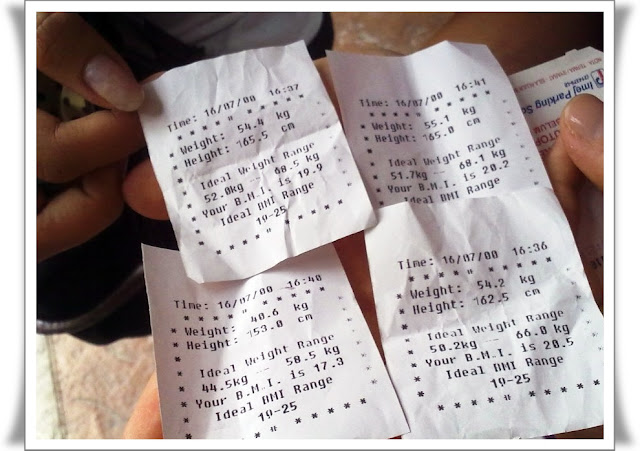 Time: 16/07/00 16:37
* * * * " * * * *
* Weight: 54.4 kg
* Height: 165.5 cm
Ideal Weight Range
52.0kg — 68.5 kg
* Your B.M.I. is 19.9
Ideal BMI Range
19-25
* * * * " * * * *
Time: 16/07/00 16:41
* * * * " * * * *
* Weight: 55.1 kg
* Height: 165.0 cm
Ideal Weight Range
51.7kg — 68.1 kg
* Your B.M.I. is 20.2
Ideal BMI Range
19-25
Time: 16/07/00 16:40
* * * * " * * * *
* Weight: 40.6 kg
* Height: 153.0 cm
Ideal Weight Range
44.5kg — 58.5 kg
* Your B.M.I. is 17.3
Ideal BMI Range
19-25
* * * * " * * * *
Time: 16/07/00 16:36
* * * * " * * * *
* Weight: 54.2 kg
* Height: 162.5 cm
Ideal Weight Range
50.2kg — 66.0 kg
* Your B.M.I. is 20.5
Ideal BMI Range
19-25
* * * * " * * * *
Parking